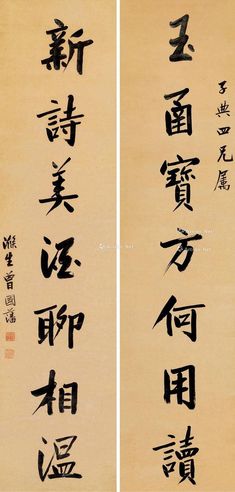 子典四兄属
玉函寶方何用讀
新詩美酒聊相溫
滌生曾國藩